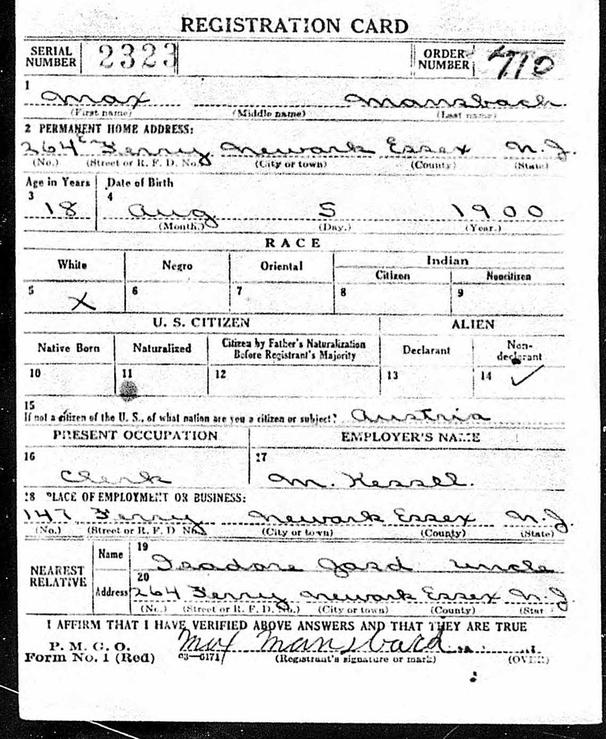 REGISTRATION CARD
SERIAL NUMBER 2323 ORDER NUMBER 710
1 Max Mansbach
(First name) (Middle name) (Last name)
2 PERMANENT HOME ADDRESS:
264 Ferry Newark Essex N.J.
(No.) (Street or R. F. D. No.) (City or town) (County) (State)
Age in Years Date of Birth
3 18 4 Aug 5 1900
(Month.) (Day.) (Year.)
RACE
White Negro Oriental Indian
Citizen Noncitizen
5 X 6 7 8 9
U. S. CITIZEN ALIEN
Native Born Naturalized Citizen by Father's Naturalization Before Registrant's Majority Declarant Non-declarant
10 11 12 13 14 ✓
15
If not a citizen of the U. S., of what nation are you a citizen or subject? Austria
PRESENT OCCUPATION EMPLOYER'S NAME
16 Clerk 17 M. Kessel.
18 PLACE OF EMPLOYMENT OR BUSINESS:
147 Ferry Newark Essex N.J.
(No.) (Street or R. F. D. No.) (City or town) (County) (State)
NEAREST RELATIVE Name 19 Uncle
Address 20 264 Ferry Newark Essex N.J
(No.) (Street or R. F. D. No.) (City or town) (County) (State
I AFFIRM THAT I HAVE VERIFIED ABOVE ANSWERS AND THAT THEY ARE TRUE
P. M. G. O.
Form No. 1 (Red) 03—6171 Max (Registrant's signature or mark) (OVER)